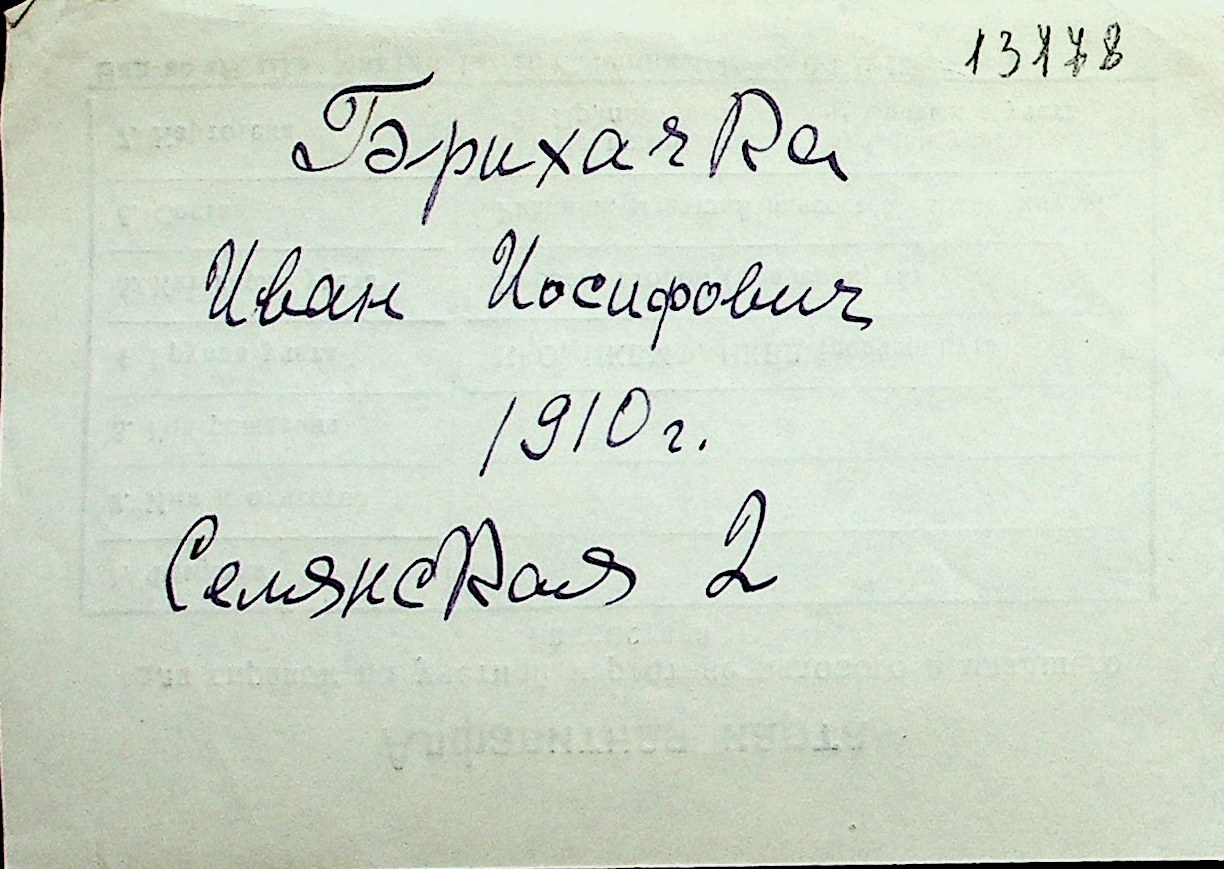 13778
Брихачка
Иван Иосифович
1910 г.
Селянская 2